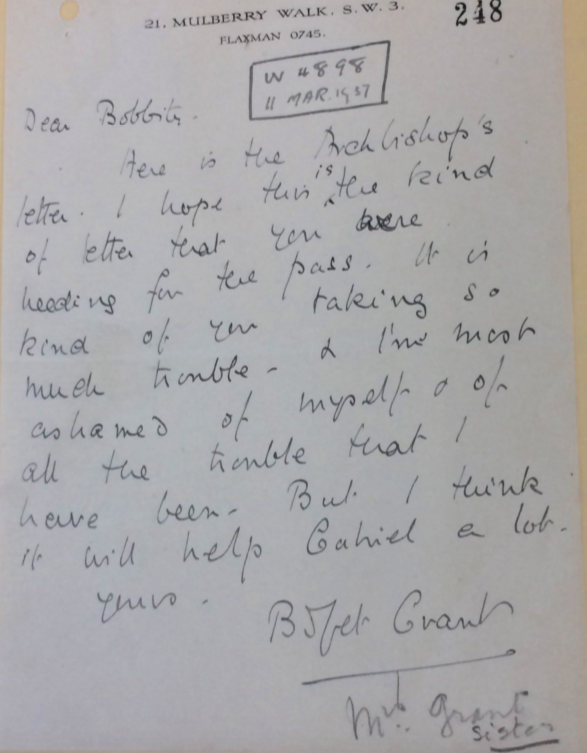 21. MULBERRY WALK. S.W. 3.
248
FLAXMAN 0745.
W 4898
11 MAR. 1937
Dear Bobbity.
Here is the Archbishop's
letter. I hope this is the kind
of letter that you were
heeding for the pass. It is
kind of you taking so
much trouble - & I'm most
ashamed of myself & of
all the trouble that I
have been. But I think
it will help Gabriel a lot.
yours.
Grant
Mrs. Grant
sister